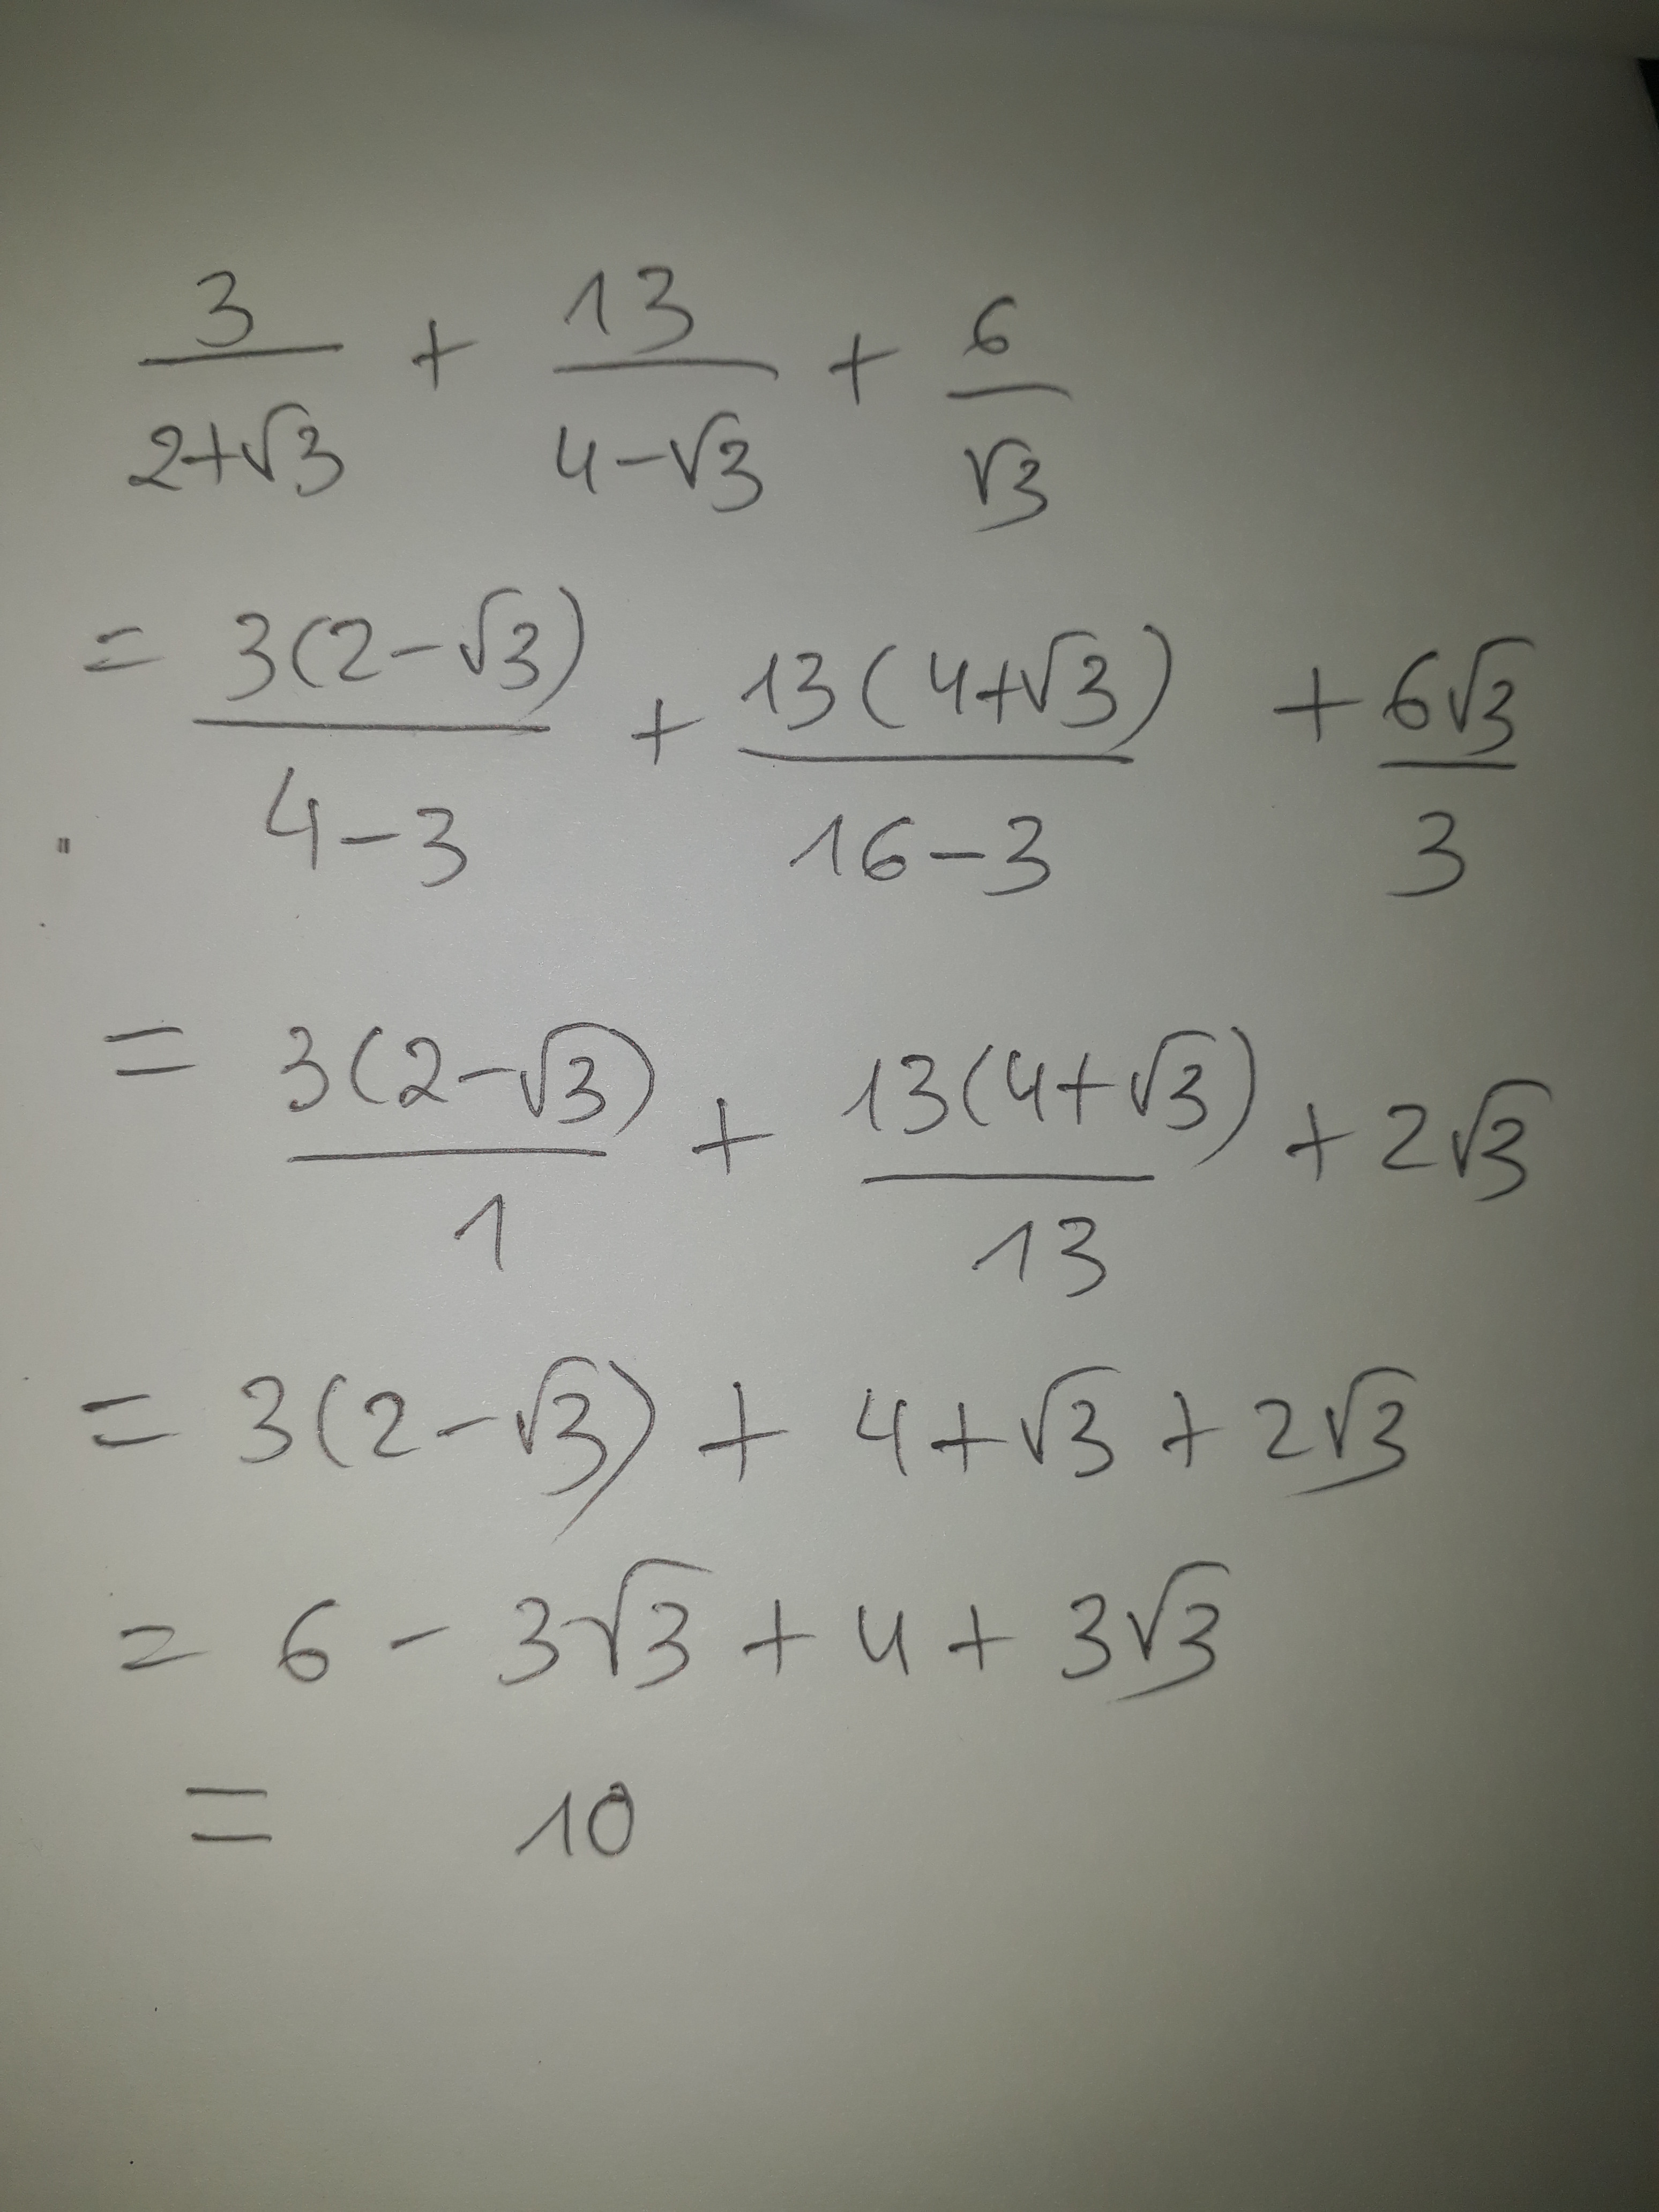 3/(2+√3) + 13/(4-√3) + 6/√3
= 3(2-√3)/(4-3) + 13(4+√3)/(16-3) + 6√3/3
= 3(2-√3)/1 + 13(4+√3)/13 + 2√3
= 3(2-√3) + 4+√3+2√3
= 6 - 3√3 + 4 + 3√3
= 10